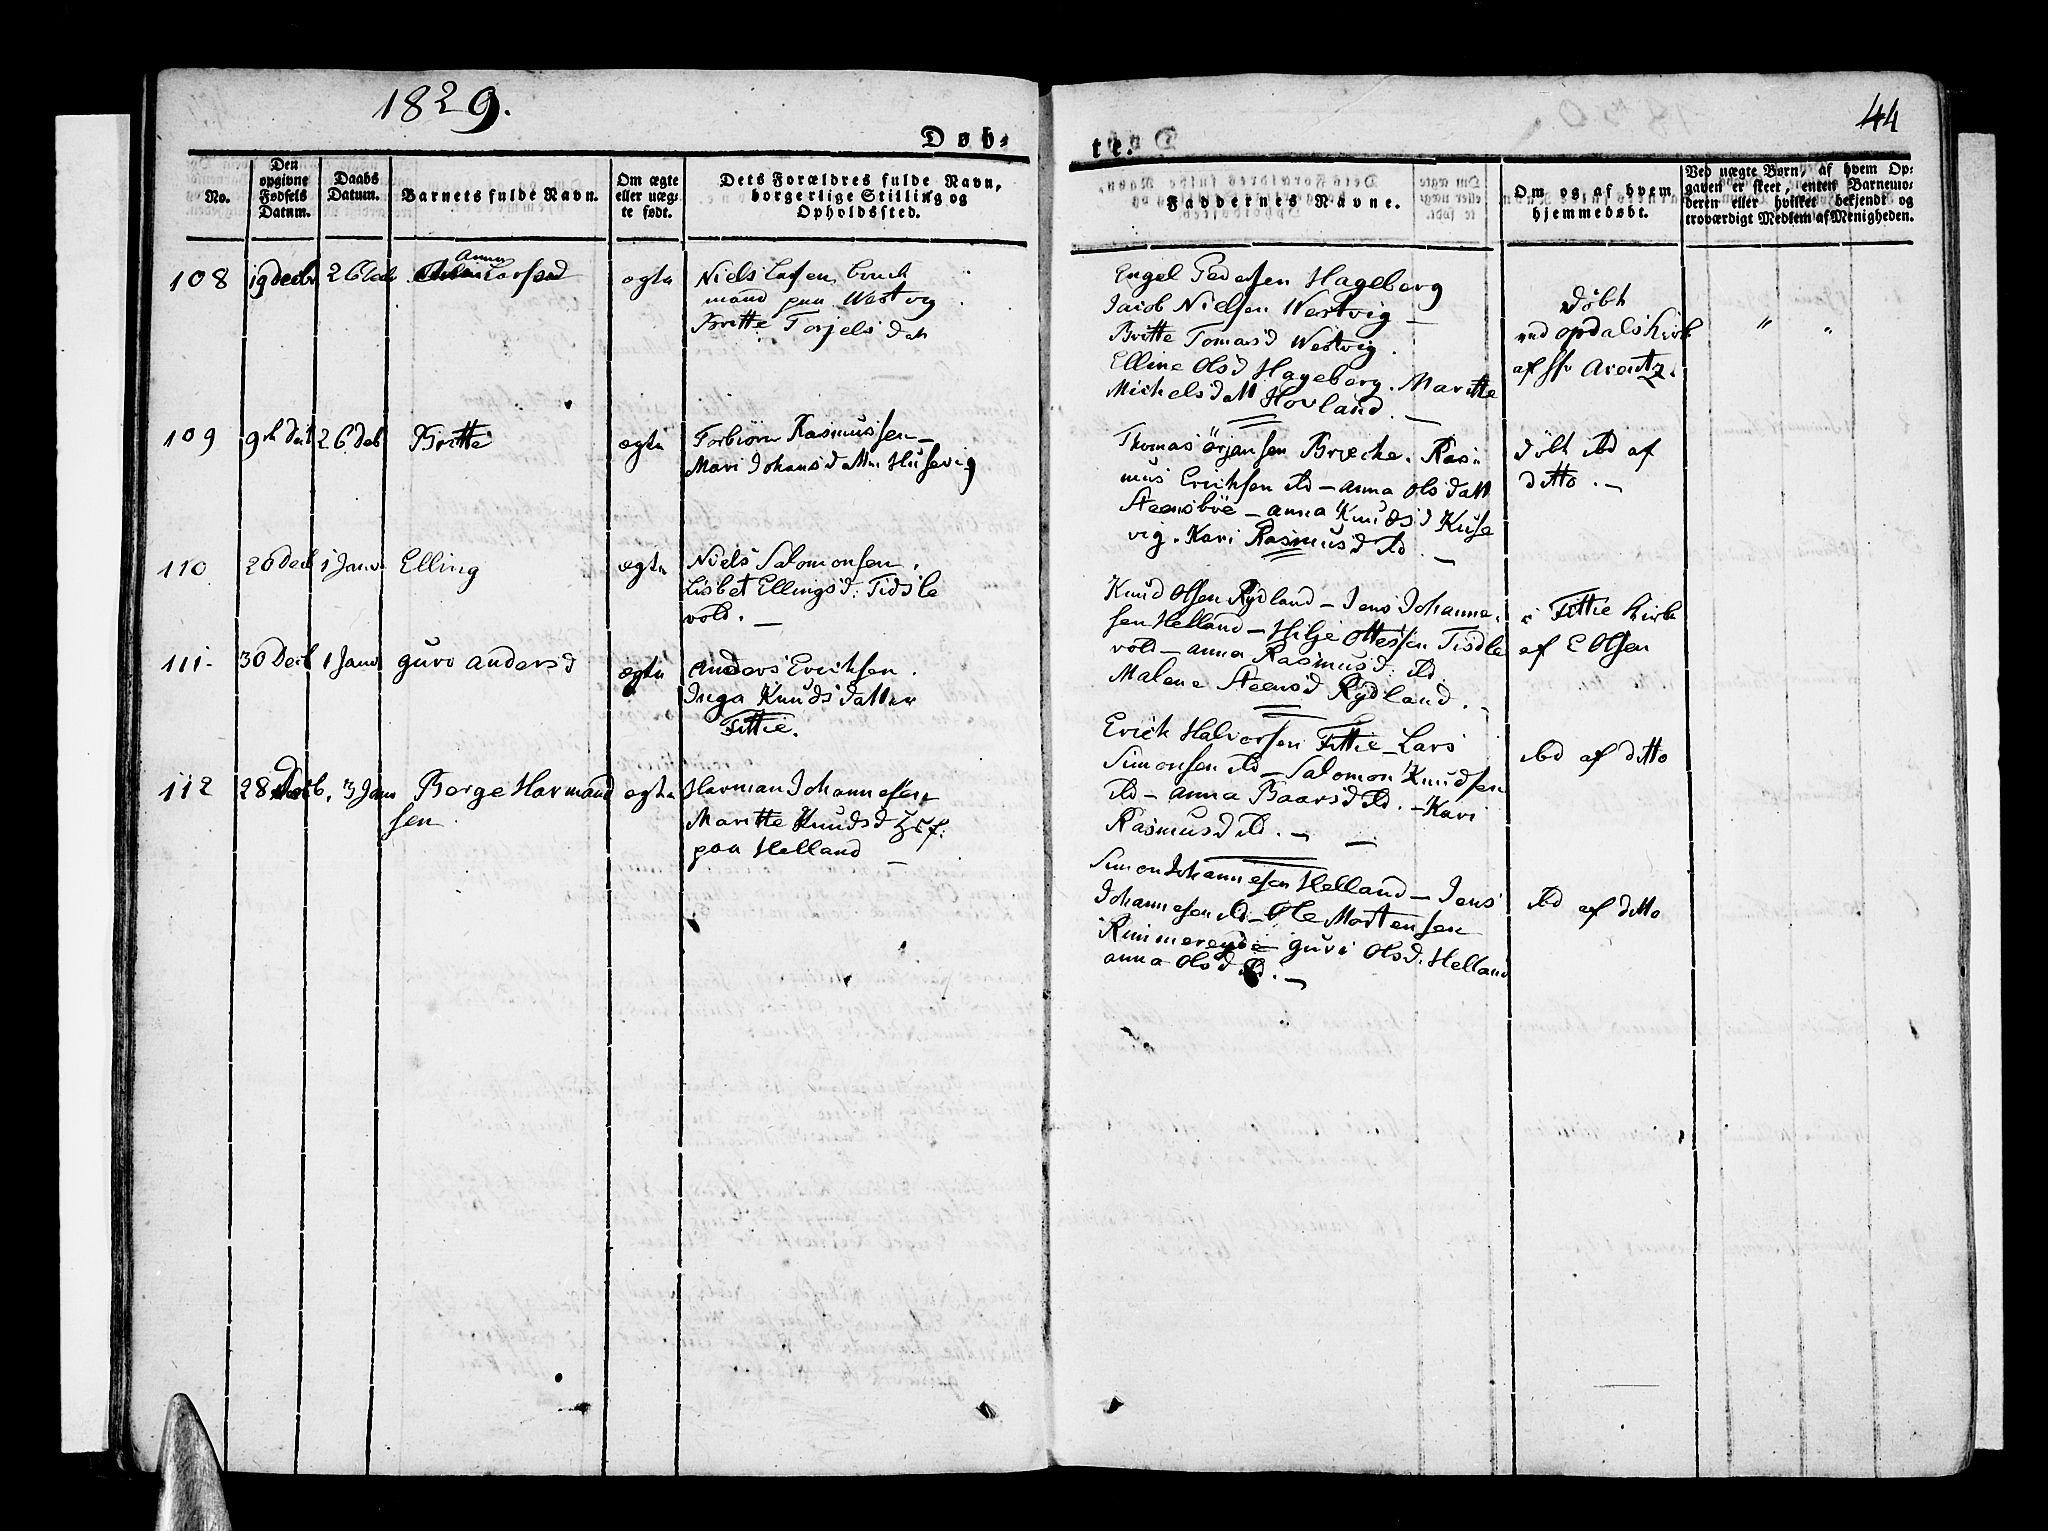 1829.
44
Døb-
te.
No.
Den
opgivne
Fødsels
Datum.
Daabs
Datum.
Barnets fulde Navn.
Om ægte
eller uæg-
te født.
Dets Forældres fulde Navn,
borgerlige Stilling og
Opholdssted.
Faddernes Navne.
Om og af hvem
hjemmedøbt.
Ved uægte Børn, af hvem Op-
gaven er skeet, enten Barnemo-
deren eller hvilket bekjendt og
troværdigt Medlem af Menigheden.
108
19 Decbr
26
Anna
ægte
Niels Larsen
mand paa Westvig
Britte Torjelsdatt
Engel Pedersen Hageberg
Jacob Nielsen Westvig –
Britte Tomasd Westvig.
Elline Olsd Hageberg. Maritte
Michelsdatt Hovland. –
Døbt
ved Opdals Kirk
af Hr Arentz.
" "
109
26 Deb
Britte
ægte
Torbiörn Rasmussen –
Mari Johansdatter Husevig
Thomas Örjansen Brecke. Ras-
mus Erichsen ibd – Anna Olsdatt
Steensböe – Anna Knudsd Huse
vig. Kari Rasmusd ibd. –
döbt ibd af
ditto. –
110
26 Decb
1 Janr
Elling
ægte
Niels Salomonsen.
Lisbet Ellingsd: Tidsle
vold. –
Knud Olsen Rydland – Jens Johanne-
sen Helland – Hilje Ottesen Tisdle
vold – Anna Rasmusd: ibd.
Malene Steensd Rydland. –
i Fittie Kirke
af E Olsen
111.
30 Decb
1 Janr
Guro Andersd
ægte
Anders Erichsen.
Inga Knudsdatter
Fittie.
Erich Halvorsen Fittie – Lars
Simonsen ibd – Salomon Knudsen
ibd – Anna Baarsd ibd. – Kari
Rasmusd ibd. –
ibd af ditto
112
28 Decb, 3 Janr
Børge Harmand
sen
ægte
Harman Johannesen
Maritte Knudsd
paa Helland –
Simon Johannesen Helland – Jens
Johannesen ibd – Ole Mortensen
Rimmereyde – Guri Olsd. Helland
Anna Olsd ibd. –
ibd af ditto